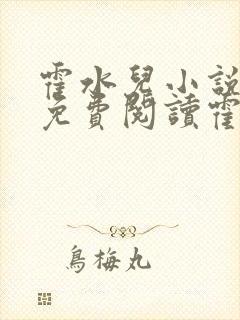 霍水兒小說
免費閱讀霍
烏梅丸